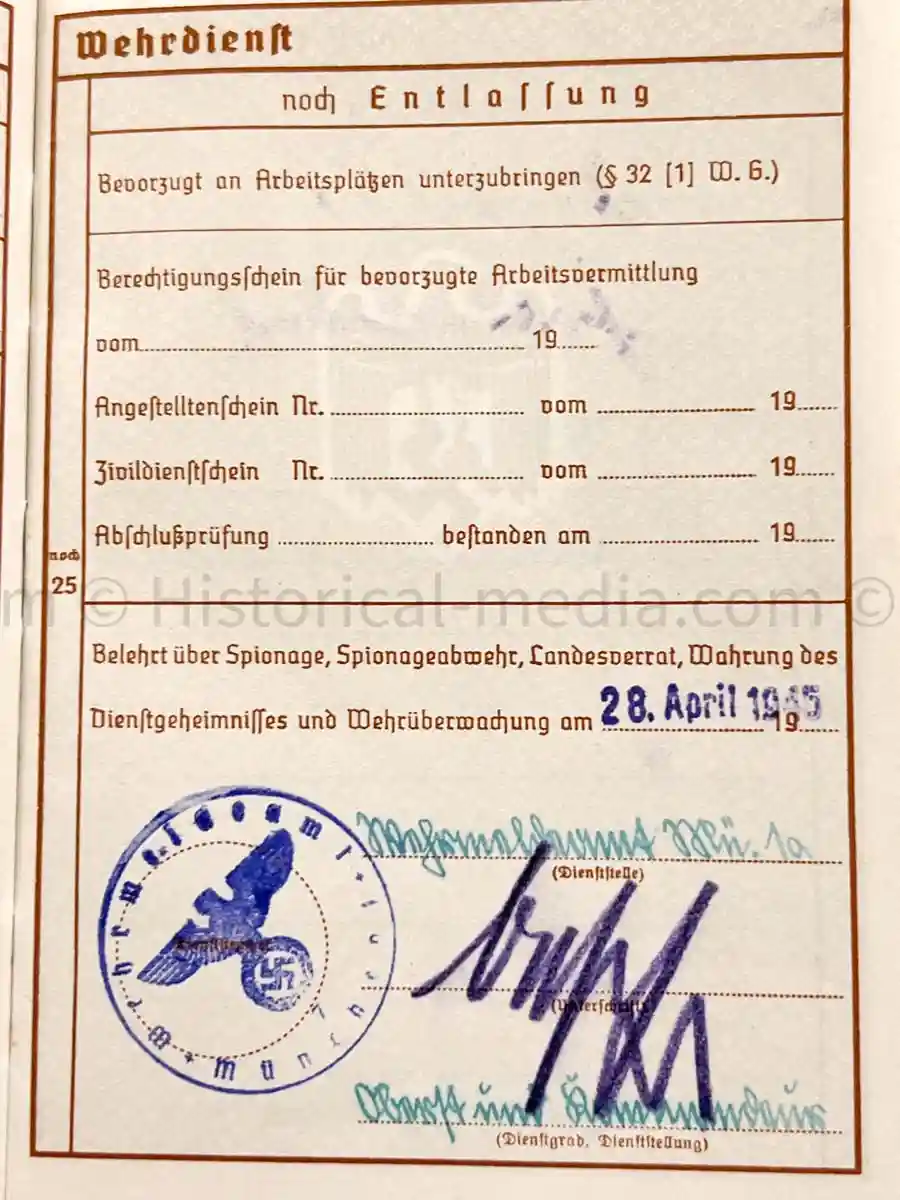 Wehrdienst
noch Entlassung
Bevorzugt an Arbeitsplätzen unterzubringen (§ 32 [1] W. G.)
Berechtigungsschein für bevorzugte Arbeitsvermittlung
vom 19
Angestelltenschein Nr. vom 19
Zivildienstschein Nr. vom 19
Abschlußprüfung bestanden am 19
noch
25
m © Historical-media.com ©
Belehrt über Spionage, Spionageabwehr, Landesverrat, Wahrung des
Dienstgeheimnisses und Wehrüberwachung am 28. April 1945 19
Wehrmeldeamt Mü. 1a
(Dienststelle)
Wehrmeldeamt * München *
7
(Dienstsiegel)
(Unterschrift)
Oberst und Kommandeur
(Dienstgrad, Dienststellung)